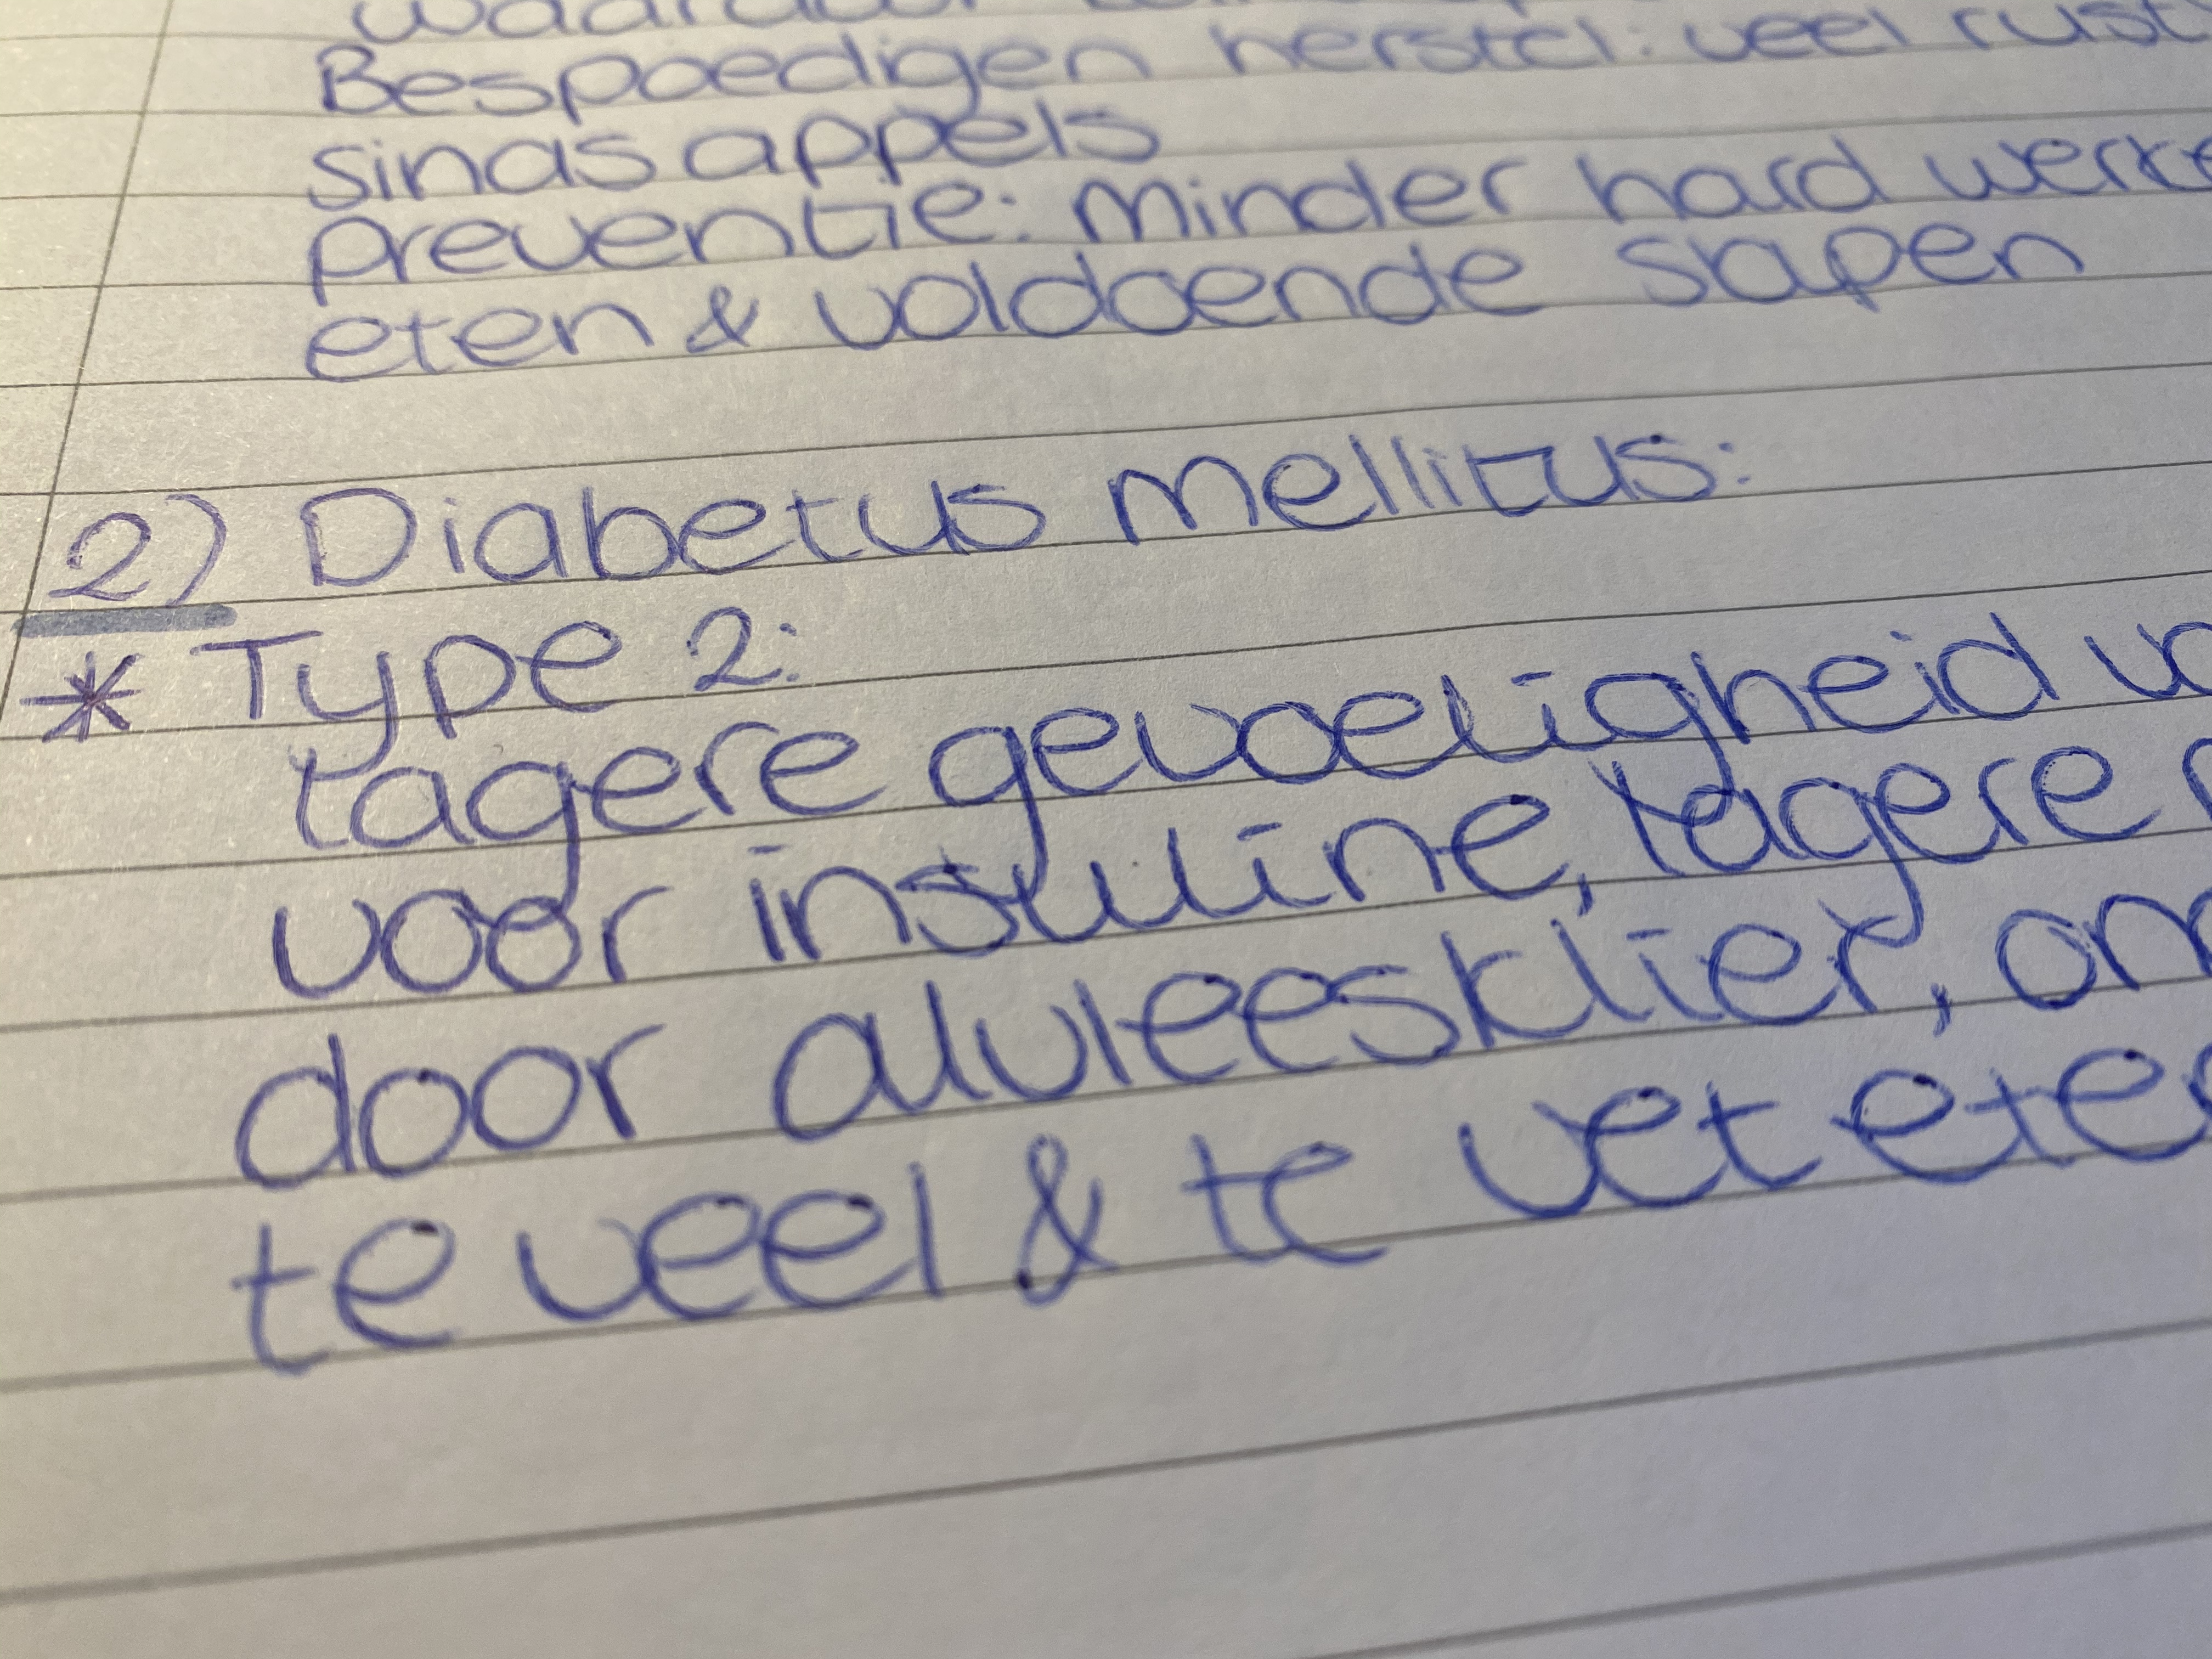 Bespoedigen herstel: veel rust
sinas appels
preventie: minder hard
eten & voldoende slapen
2) Diabetus mellitus:
* Type 2:
lagere gevoeligheid
voor insuline, lagere
door alvleesklier,
te veel & te vet eten